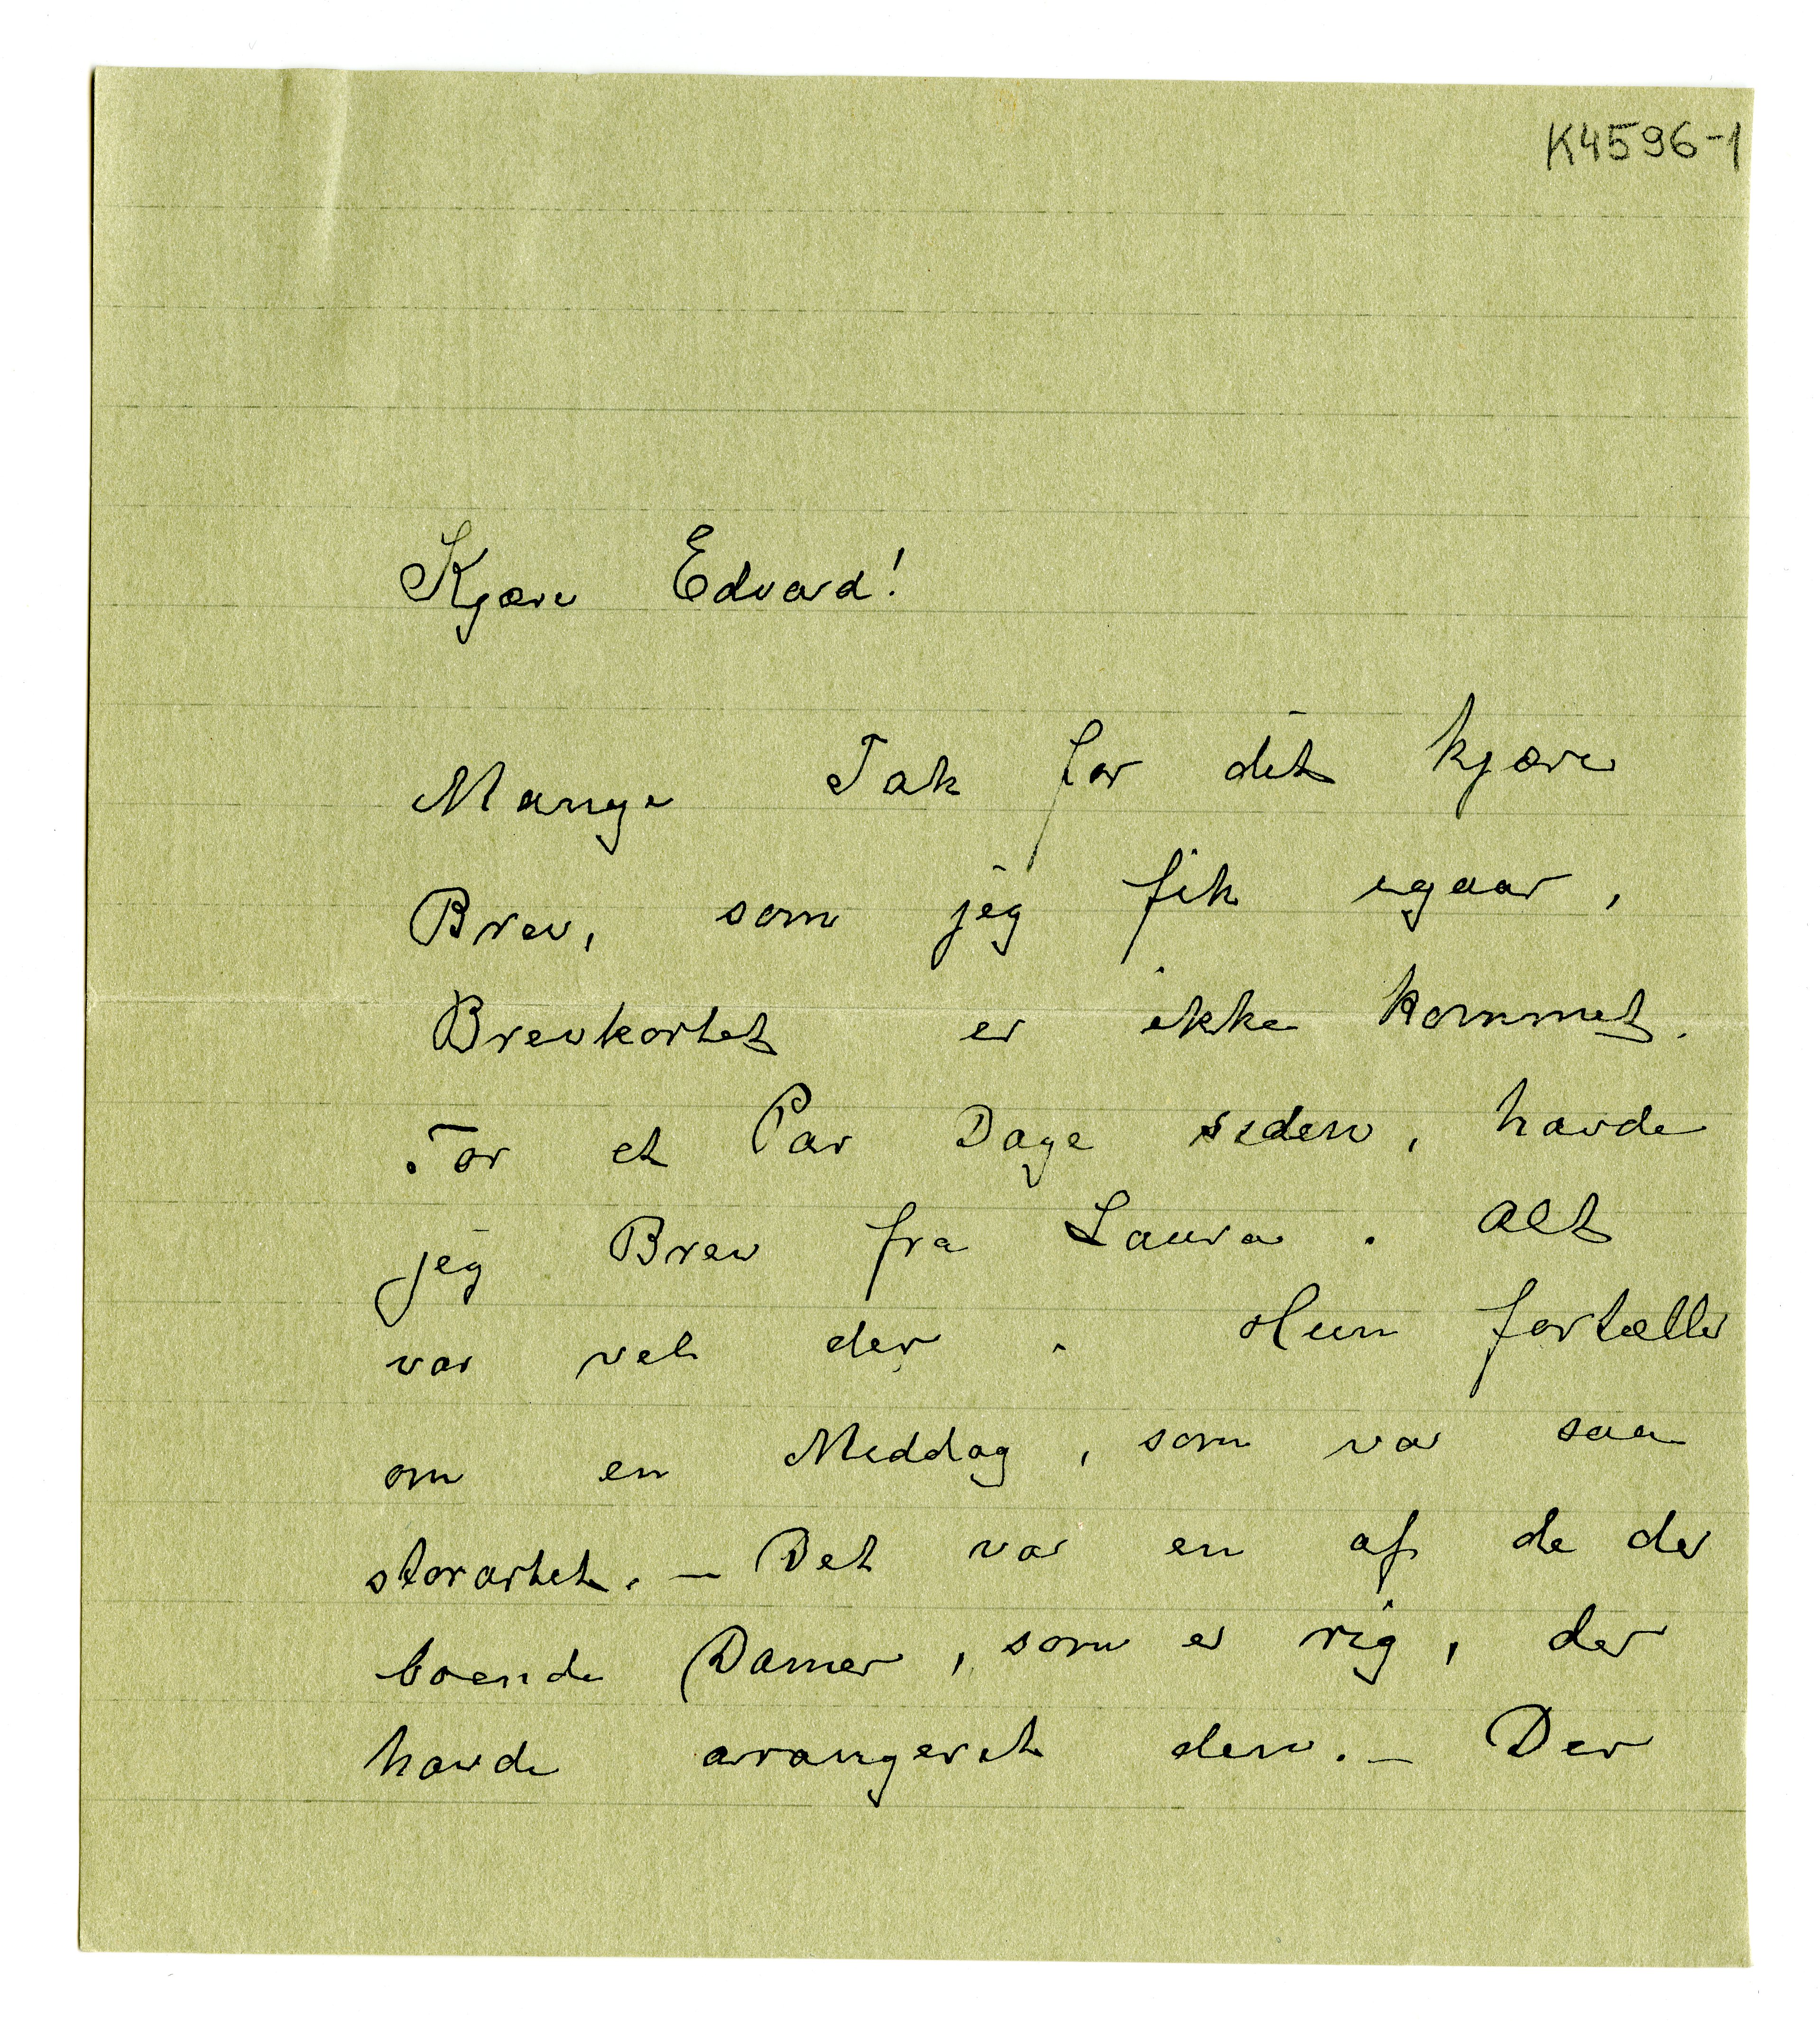 K4596-1
Kjære Edvard!
Mange Tak for dit kjære
Brev, som jeg fik igaar,
Brevkortet er ikke kommet.
For et Par Dage siden, havde
jeg Brev fra Laura. Alt
var vel der. Hun fortæller
om en Middag, som var saa
storartet. – Det var en af de der
boende Damer, som er rig, der
havde arangeret den. – Der